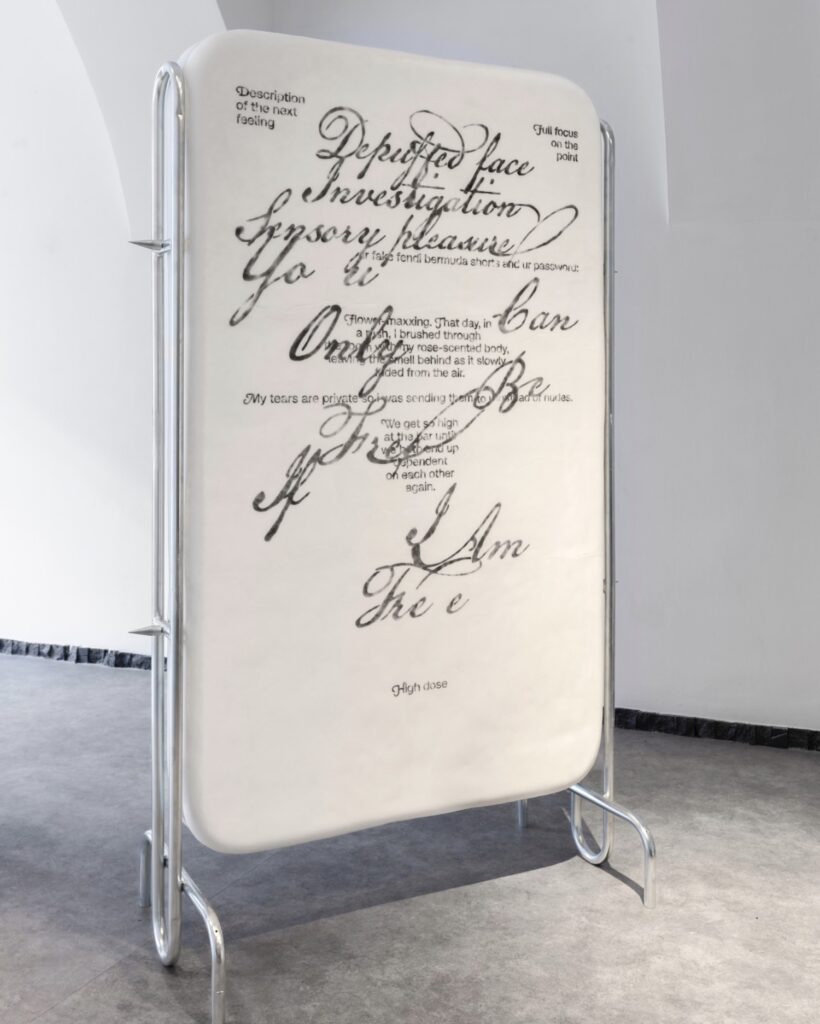 Description
of the next
feeling
Full focus
on the
point
Depuffed face
Investigation
Sensory pleasure
ur fake fendi bermuda shorts and ur password:
You
Can
Only
Flower-maxxing. That day, in
a rush, I brushed through
with my rose-scented body,
leaving the smell behind as it slowly
faded from the air.
Be
My tears are private so I was sending them to u instead of nudes.
Free
We get so high
at the bar until
we both end up
dependent
on each other
again.
If
I Am
Free
High dose